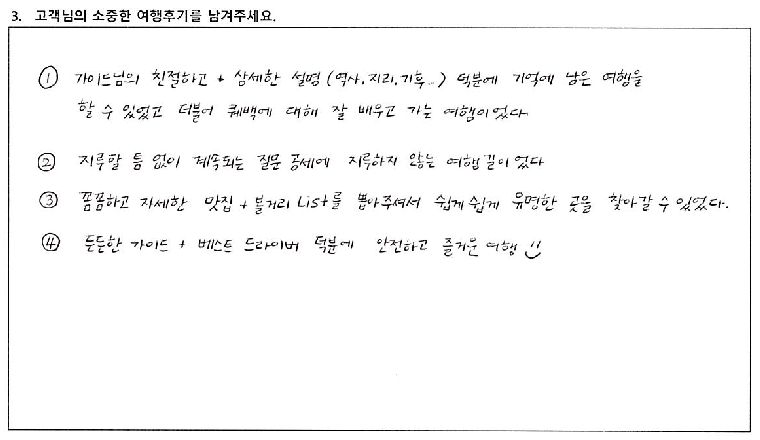 3. 고객님의 소중한 여행후기를 남겨주세요.
① 가이드님의 친절하고 + 상세한 설명 (역사, 지리, 기후...) 덕분에 기억에 남은 여행을
할 수 있었고 더불어 퀘백에 대해 잘 배우고 가는 여행이었다.
② 지루할 틈 없이 계속되는 질문 공세에 지루하지 않는 여행길이었다
③ 꼼꼼하고 자세한 맛집 + 볼거리 List를 뽑아주셔서 쉽게쉽게 유명한 곳을 찾아갈 수 있었다.
④ 든든한 가이드 + 베스트 드라이버 덕분에 안전하고 즐거운 여행 !!